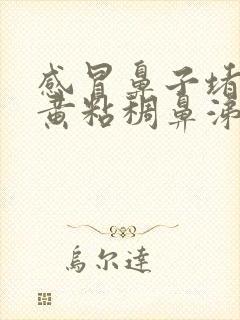 感冒鼻子堵
黄粘稠鼻涕
烏尔達